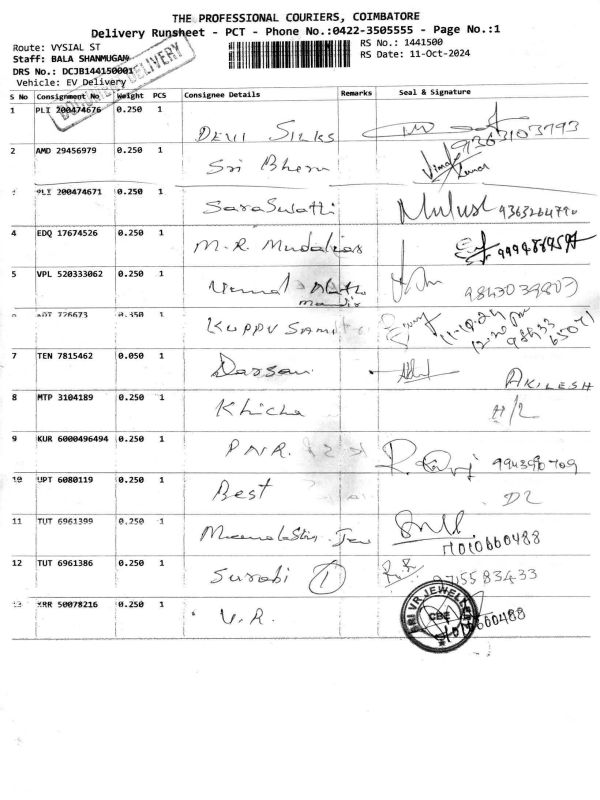 THE PROFESSIONAL COURIERS, COIMBATORE
Delivery Runsheet - PCT - Phone No.:0422-3505555 - Page No.:1
Route: VYSIAL ST
RS No.: 1441500
Staff: BALA SHANMUGAM
RS Date: 11-Oct-2024
DRS No.: DCJB144150001
Vehicle: EV Delivery
DELIVERY
S No Consignment No Weight PCS Consignee Details Remarks Seal & Signature
1 PLI 200474676 0.250 1 Devi Silks 9363103793
2 AMD 29456979 0.250 1 Sri
PLI 200474671 0.250 1 Saraswathi 9363264790
4 EDQ 17674526 0.250 1 M.R. Mudaliar
5 VPL 520333062 0.250 1 9843039803
726673 0.350 1 KUPPU SAMI 11-10-24
12.20 pm
98433
65071
7 TEN 7815462 0.050 1 Darsan AKILESH
8 MTP 3104189 0.250 1 Khicha H/2
9 KUR 6000496494 0.250 1 PNR.
10 UPT 6080119 0.250 1 Best D2
11 TUT 6961399 0.250 1
7010660488
12 TUT 6961386 0.250 1 Surabi 1 9715583433
13 KRR 50078216 0.250 1 V.R. 7010660488
SRI VR JEWELLERS
CBE